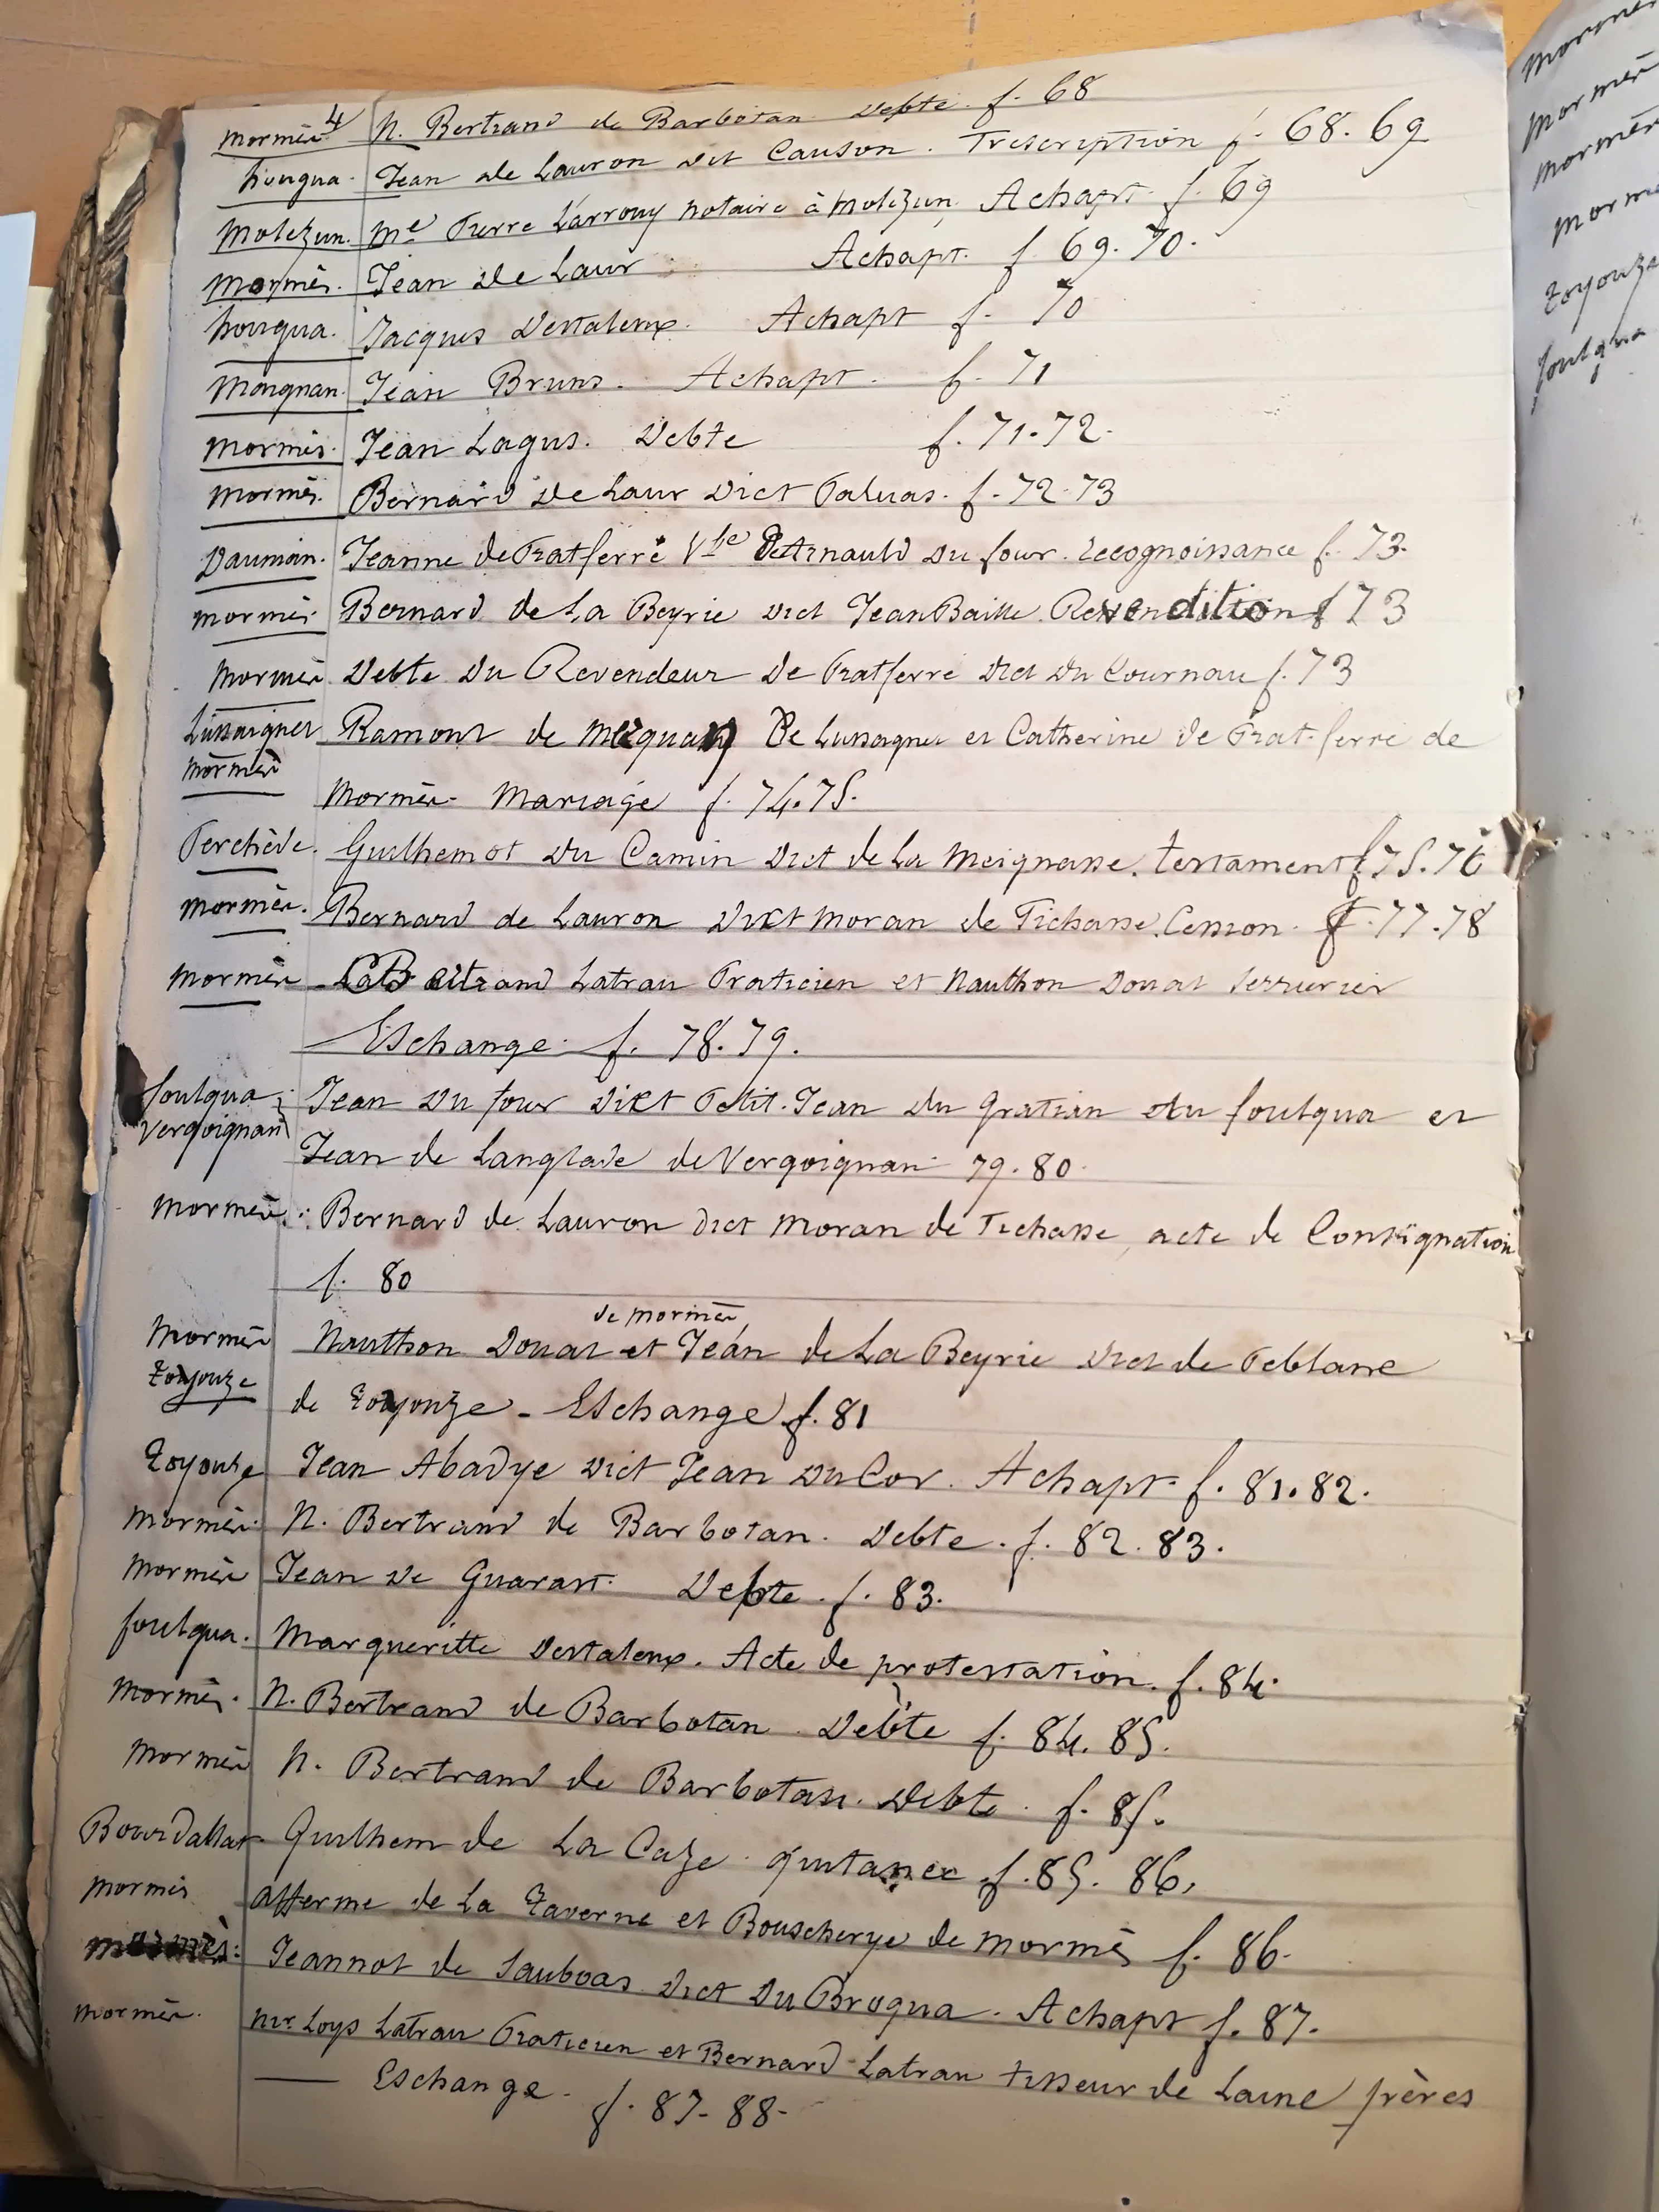 4
Mormès N. Bertrand de Barbotan Debte. f. 68
houga. Jean de Lauron dit Causon. Trescription f. 68. 69
Molezun. Me Pierre Larrouy notaire à Molezun. Achapt f. 69
Mormès. Jean de Laur Achapt. f. 69. 70.
houga. Jacques Destaleux. Achapt f. 70
Mongnan. Jean Bruns. Achapt. f. 71
Mormès. Jean Lagus. Debte f. 71. 72.
Mormès. Bernard de Laur Dict Paluas. f. 72. 73
Daunian. Jeanne de Pratferré Vfe De Arnauld du four. recognoissance f. 73.
Mormès Bernard de La Beyrie dict Jean Baille. Revendition f 73
Mormès Debte du Revendeur de Pratferré dict du Cournau f. 73
Lussaignet Ramont de De Lussagnet et Catherine de Prat-ferré de
Mormès
Mormès. Mariage f. 74. 75.
Perchède. Guilhemot du Camin dict de La Meignasse. testament f 75. 76
Mormès. Bernard de Lauron Dict Moran de Tichasse. Cession. f. 77. 78
Mormès Latrau Praticien et Nauthon Douat Serrurier
Eschange. f. 78. 79.
foulqua; Jean du four dict Petit. Jean du Gratian du foulqua et
Vergoignan
Jean de Langlade de Vergoignan. 79. 80.
Mormès. Bernard de Lauron dict Moran de Tichasse, acte de Consignation
f. 80
de Mormès
Mormès Nauthon Douat et Jean de La Beyrie dict de Peblane
Toyouze
de Toyouze - Eschange f. 81
Toyouze Jean Abadye dict Jean du Cor. Achapt. f. 81. 82.
Mormès. N. Bertrand de Barbotan. Debte. f. 82. 83.
Mormès Jean de Guarart. Debte. f. 83.
foulqua. Margueritte Destaleux. Acte de protestation. f. 84.
Mormès. N. Bertrand de Barbotan. Debte f. 84. 85.
Mormès N. Bertrand de Barbotan. Debte. f. 85.
Bourdallat Guilhem de La Caze. quitance f. 85. 86.
Mormès Afferme de La Taverne et Bouscherye de Mormès f. 86.
Mormès: Jeannot de Sauboas dict du Broqua. Achapt f. 87.
Mormès. Mr. Loys Latrau Praticien et Bernard Latrau tisseur de Laine frères
— Eschange. f. 87. 88.
Mormès
Mormès
Mormès
Toyouze
foulqua